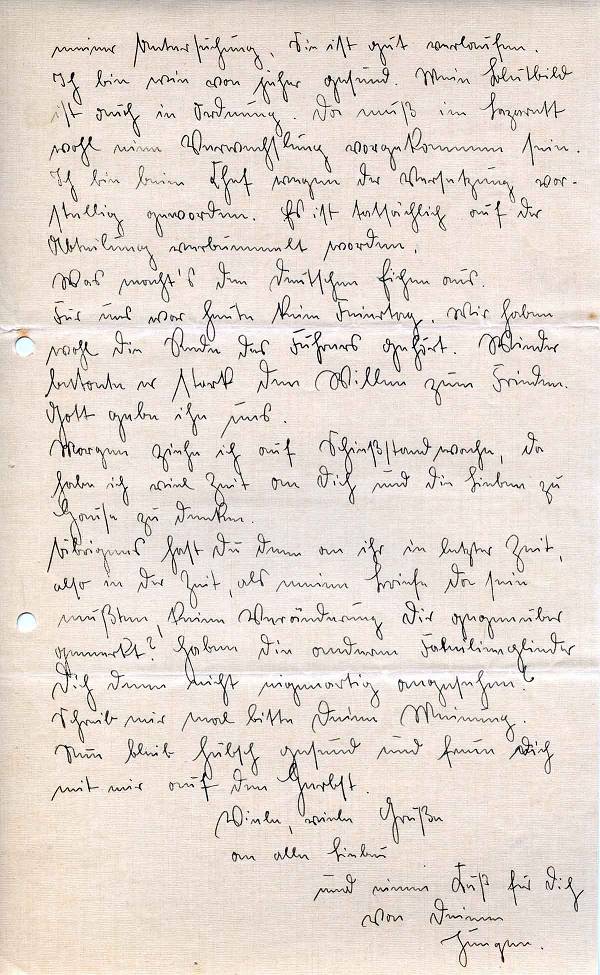 meiner Untersuchung. Sie ist gut verlaufen.
Ich bin wie von jeher gesund. Mein Blutbild
ist auch in Ordnung. Da muß im Lazarett
wohl eine Verwechslung vorgekommen sein.
Ich bin beim Chef wegen der Versetzung vor-
stellig geworden. Es ist tatsächlich auf der
Abteilung verbummelt worden.
Was macht's den deutschen Eichen aus.
Für uns war heute kein Feiertag. Wir haben
wohl die Rede des Führers gehört. Wieder
betonte er stark den Willen zum Frieden.
Gott gebe ihn uns.
Morgen ziehe ich auf Schießstandwache, da
habe ich viel Zeit an Dich und die Lieben zu
Hause zu denken.
Übrigens hast Du denn an ihr in letzter Zeit,
also in der Zeit, als meine Briefe da sein
mußten, keine Veränderung Dir gegenüber
gemerkt? Haben die anderen Familienglieder
Dich denn nicht eigenartig angesehen?
Schreib mir mal bitte Deine Meinung.
Nun bleib hübsch gesund und freue Dich
mit mir auf den Herbst.
Viele, viele Grüße
an alle Lieben
und einen Kuß für Dich
von Deinem
Jürgen.